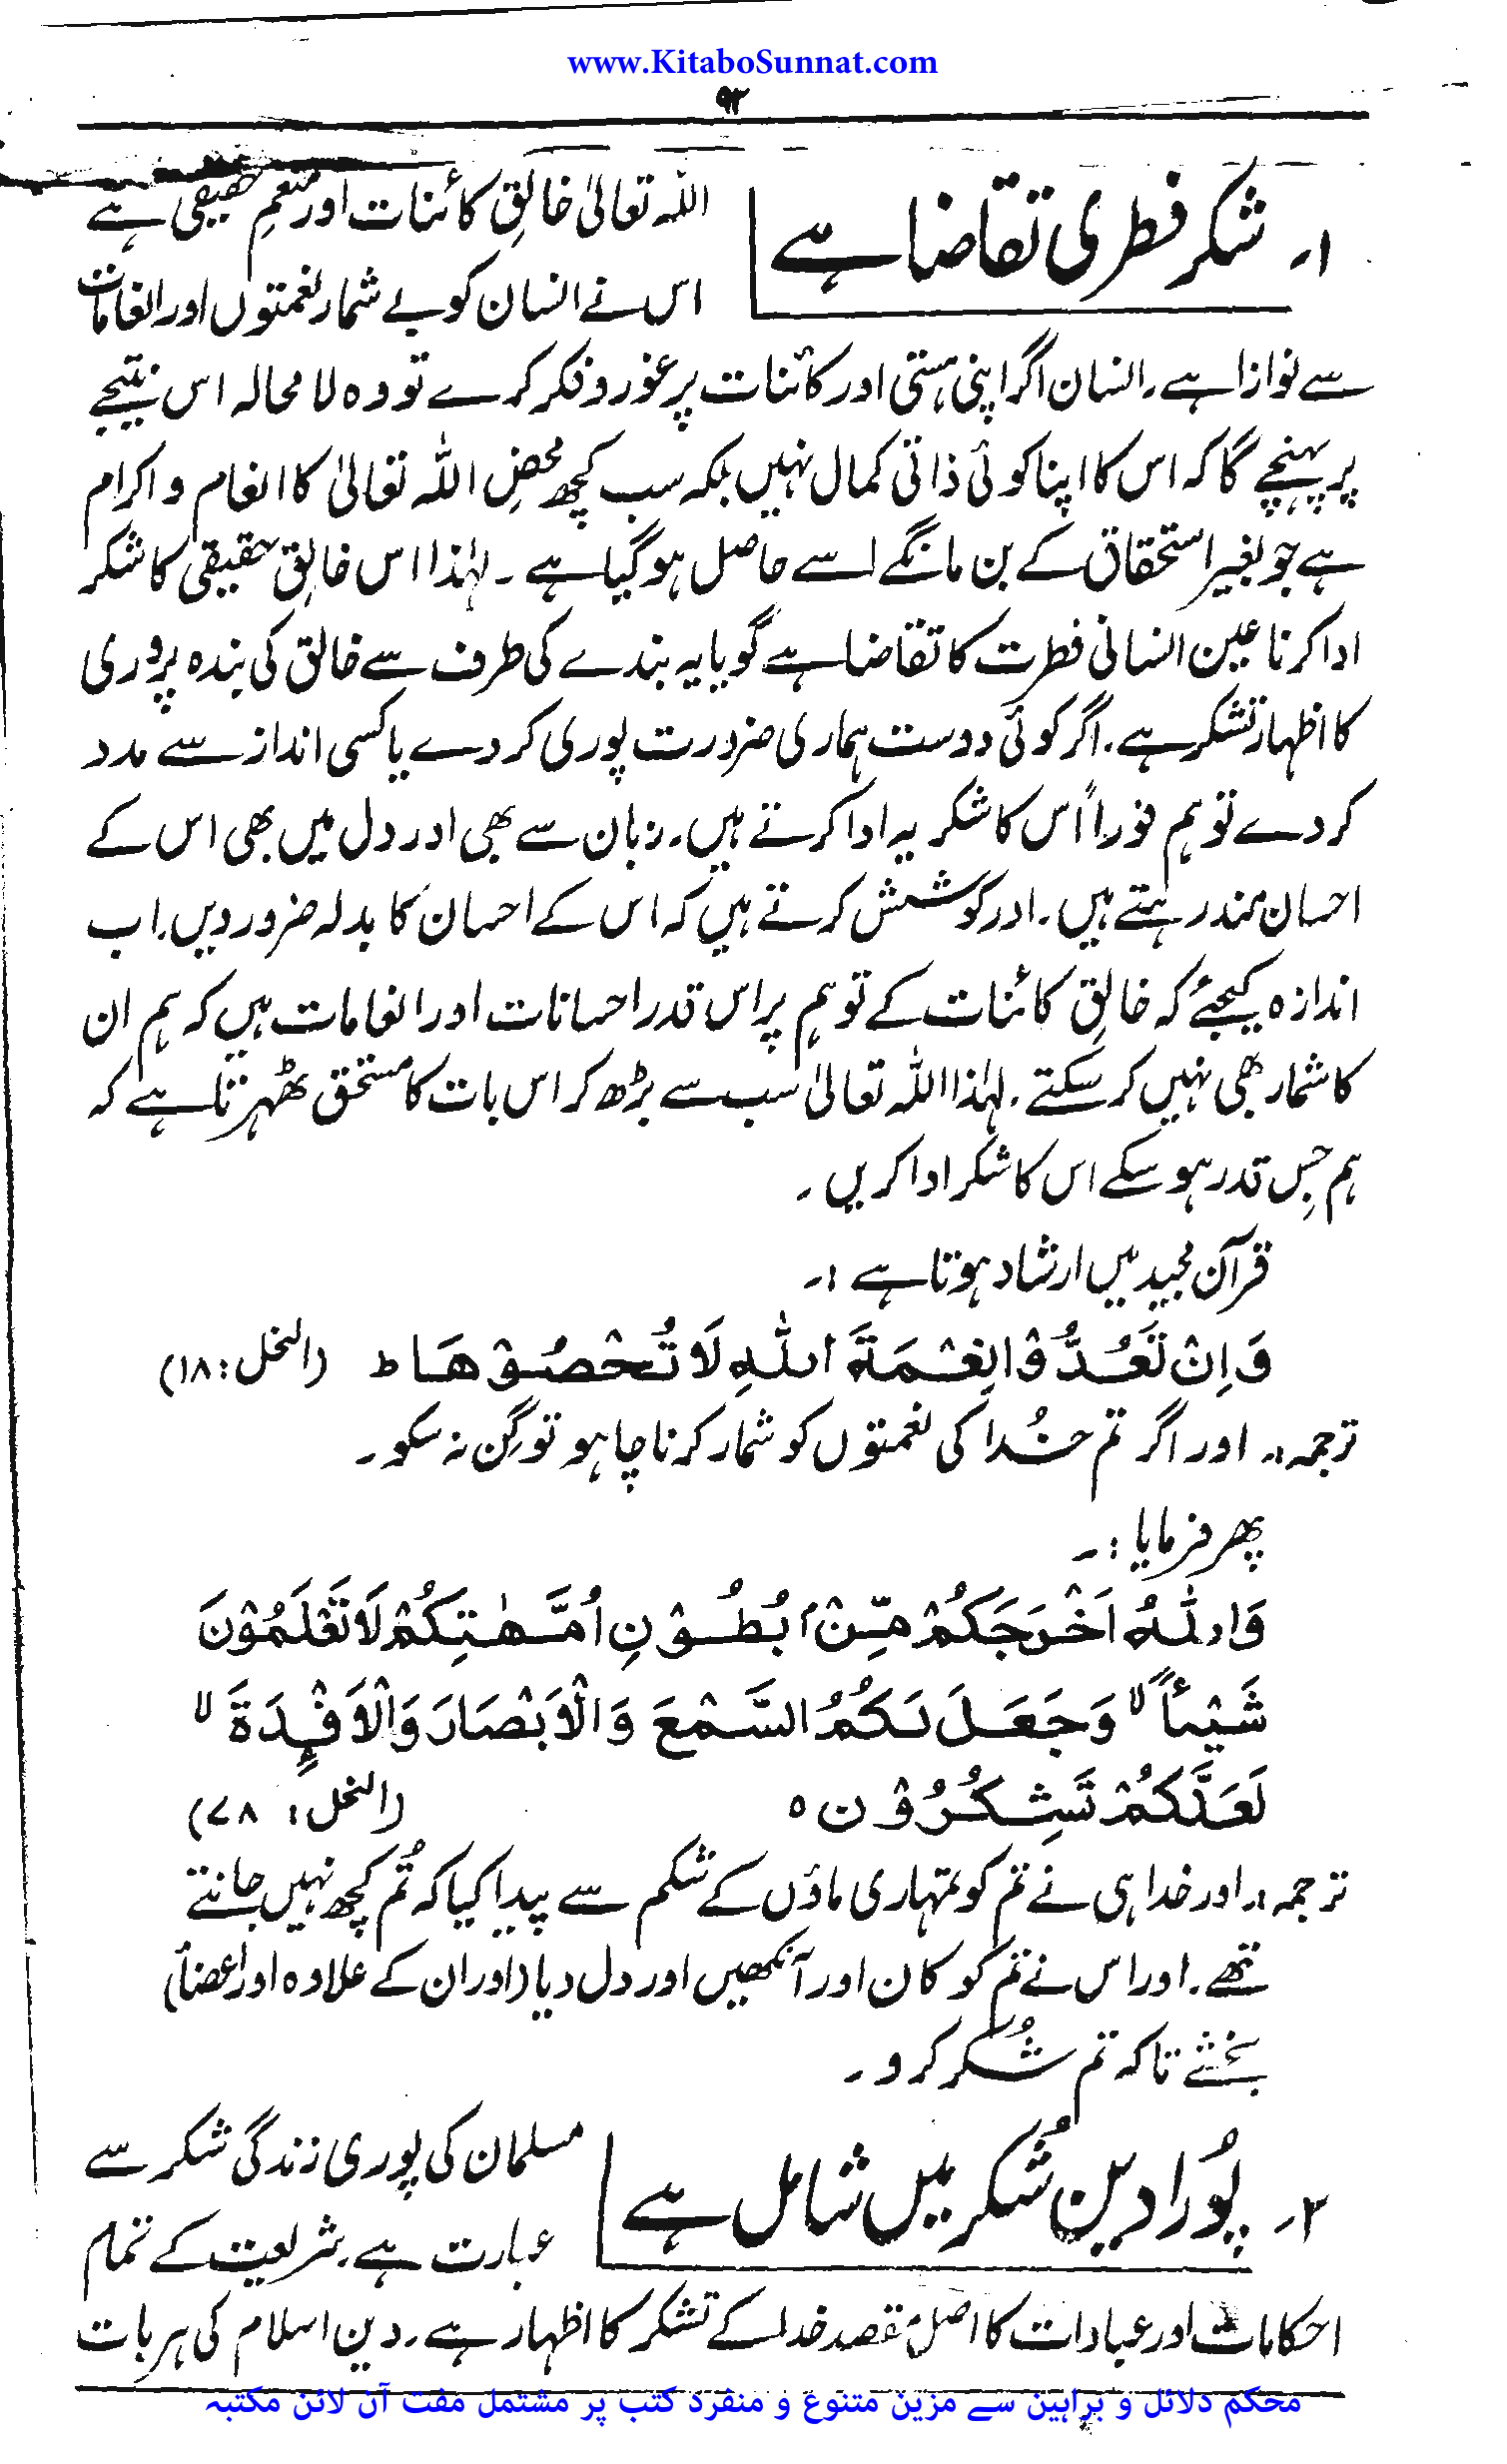 www.KitaboSunnat.com
۹۲
۱۔ شکر فطری تقاضا ہے
اللہ تعالیٰ خالقِ کائنات اور منعمِ حقیقی ہے
اس نے انسان کو بے شمار نعمتوں اور انعامات
سے نوازا ہے۔ انسان اگر اپنی ہستی اور کائنات پر غور و فکر کرے تو وہ لا محالہ اس نتیجے
پر پہنچے گا کہ اس کا اپنا کوئی ذاتی کمال نہیں بلکہ سب کچھ محضِ اللہ تعالیٰ کا انعام و اکرام
ہے جو بغیر استحقاق کے بن مانگے اسے حاصل ہو گیا ہے ۔ لہٰذا اس خالقِ حقیقی کا شکر
ادا کرنا عین انسانی فطرت کا تقاضا ہے گویا یہ بندے کی طرف سے خالق کی بندہ پروری
کا اظہار تشکر ہے۔ اگر کوئی دوست ہماری ضرورت پوری کر دے یا کسی انداز سے مدد
کر دے تو ہم فوراً اس کا شکریہ ادا کرتے ہیں۔ زبان سے بھی اور دل میں بھی اس کے
احسان مند رہتے ہیں۔ اور کوشش کرتے ہیں کہ اس کے احسان کا بدلہ ضرور دیں۔ اب
اندازہ کیجئے کہ خالقِ کائنات کے تو ہم پر اس قدر احسانات اور انعامات ہیں کہ ہم ان
کا شمار بھی نہیں کر سکتے۔ لہٰذا اللہ تعالیٰ سب سے بڑھ کر اس بات کا مستحق ٹھہرتا ہے کہ
ہم جِس قدر ہو سکے اس کا شکر ادا کریں ۔
قرآن مجید میں ارشاد ہوتا ہے :۔
وَاِنْ تَعُدُّوْا نِعْمَةَ اللّٰهِ لَا تُحْصُوْهَا ط (النحل : ۱۸)
ترجمہ :۔ اور اگر تم خُدا کی نعمتوں کو شمار کرنا چاہو تو گِن نہ سکو ۔
پھر فرمایا :۔
وَاللّٰهُ اَخْرَجَكُمْ مِّنْۢ بُطُوْنِ اُمَّهٰتِكُمْ لَا تَعْلَمُوْنَ
شَيْـًٔا ۙ وَجَعَلَ لَكُمُ السَّمْعَ وَالْاَبْصَارَ وَالْاَفْـِٕدَةَ ۙ
لَعَلَّكُمْ تَشْكُرُوْنَ ٥ (النحل : ۷۸)
ترجمہ :۔ اور خدا ہی نے تم کو تمہاری ماؤں کے شکم سے پیدا کیا کہ تُم کچھ نہیں جانتے
تھے۔ اور اس نے تم کو کان اور آنکھیں اور دل دیا (اور ان کے علاوہ اور اعضأ)
بخشے تاکہ تم شُکر کرو ۔
۲۔ پُورا دین شُکر میں شامل ہے
مسلمان کی پوری زندگی شکر سے
عبارت ہے۔ شریعت کے تمام
احکامات اور عبادات کا اصل مقصد خدا کے تشکر کا اظہار ہے۔ دین اسلام کی ہر بات
محکم دلائل و براہین سے مزین متنوع و منفرد کتب پر مشتمل مفت آن لائن مکتبہ